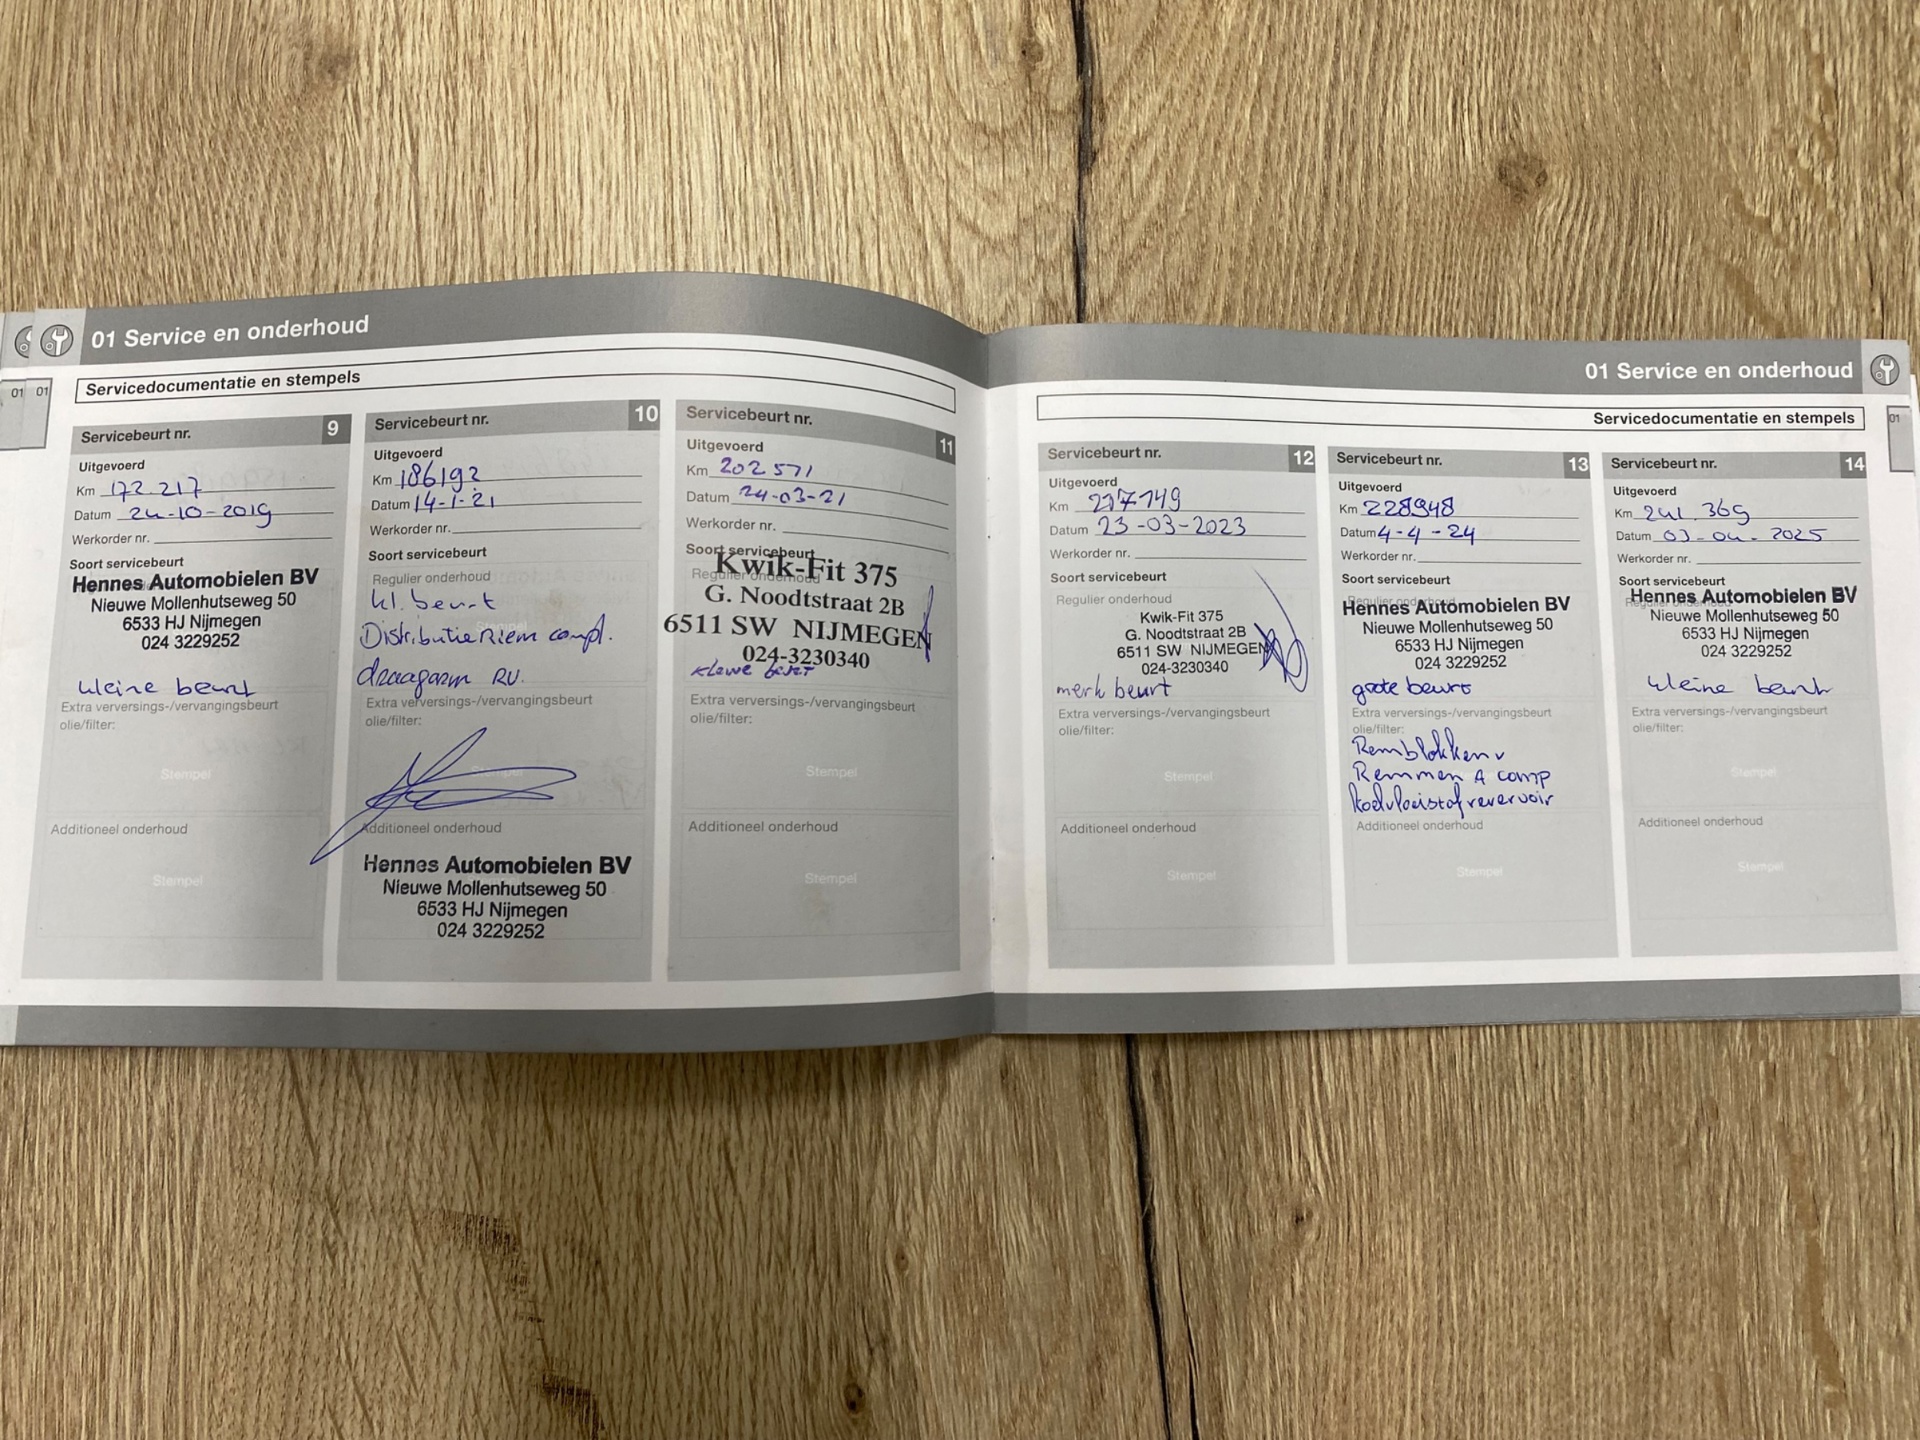 01 Service en onderhoud
01
01
Servicedocumentatie en stempels
Servicebeurt nr. 9
Uitgevoerd
Km 172.217
Datum 24-10-2019
Werkorder nr.
Soort servicebeurt
Hennes Automobielen BV
Nieuwe Mollenhutseweg 50
6533 HJ Nijmegen
024 3229252
kleine beurt
Extra verversings-/vervangingsbeurt
olie/filter:
Stempel
Additioneel onderhoud
Stempel
Servicebeurt nr. 10
Uitgevoerd
Km 186192
Datum 14-1-21
Werkorder nr.
Soort servicebeurt
Regulier onderhoud
kl. beurt
Distributie Riem compl.
Stempel
draagarm RV.
Extra verversings-/vervangingsbeurt
olie/filter:
Stempel
Additioneel onderhoud
Hennes Automobielen BV
Nieuwe Mollenhutseweg 50
6533 HJ Nijmegen
024 3229252
Servicebeurt nr. 11
Uitgevoerd
Km 202571
Datum 24-03-21
Werkorder nr.
Soort servicebeurt
Regulier onderhoud
Kwik-Fit 375
G. Noodtstraat 2B
6511 SW NIJMEGEN
024-3230340
kleine beurt
Extra verversings-/vervangingsbeurt
olie/filter:
Stempel
Additioneel onderhoud
Stempel
01 Service en onderhoud
01
Servicedocumentatie en stempels
Servicebeurt nr. 12
Uitgevoerd
Km 217149
Datum 23-03-2023
Werkorder nr.
Soort servicebeurt
Regulier onderhoud
Kwik-Fit 375
G. Noodtstraat 2B
6511 SW NIJMEGEN
024-3230340
merk beurt
Extra verversings-/vervangingsbeurt
olie/filter:
Stempel
Additioneel onderhoud
Stempel
Servicebeurt nr. 13
Uitgevoerd
Km 228948
Datum 4-4-24
Werkorder nr.
Soort servicebeurt
Regulier onderhoud
Hennes Automobielen BV
Nieuwe Mollenhutseweg 50
6533 HJ Nijmegen
024 3229252
grote beurt
Extra verversings-/vervangingsbeurt
olie/filter:
Remblokken v
Remmen A comp
koelvloeistofreservoir
Additioneel onderhoud
Stempel
Servicebeurt nr. 14
Uitgevoerd
Km 241.369
Datum 03-04-2025
Werkorder nr.
Soort servicebeurt
Regulier onderhoud
Hennes Automobielen BV
Nieuwe Mollenhutseweg 50
6533 HJ Nijmegen
024 3229252
kleine beurt
Extra verversings-/vervangingsbeurt
olie/filter:
Stempel
Additioneel onderhoud
Stempel